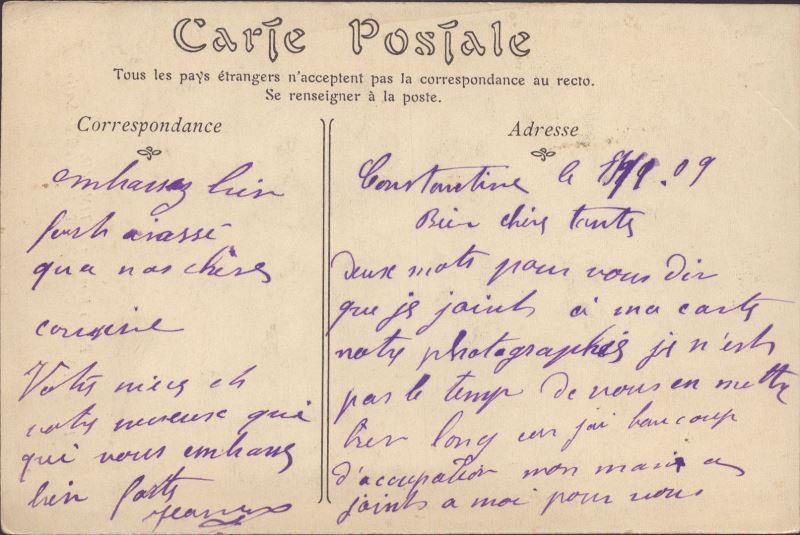 Carte Postale
Tous les pays étrangers n'acceptent pas la correspondance au recto.
Se renseigner à la poste.
Correspondance
Adresse
Constantine le 09
Bien chère tante
deux mots pour vous dir
que je joints a ma carte
notre photographie je n'est
pas le temp de vous en mettre
bien long car j'ai baucoup
d'accupation mon mari
joints a moi pour vous
embrassez bien
qu'a nos chères
cousine
Votre niece et
votre neveux qui
qui vous embrass
bien forte